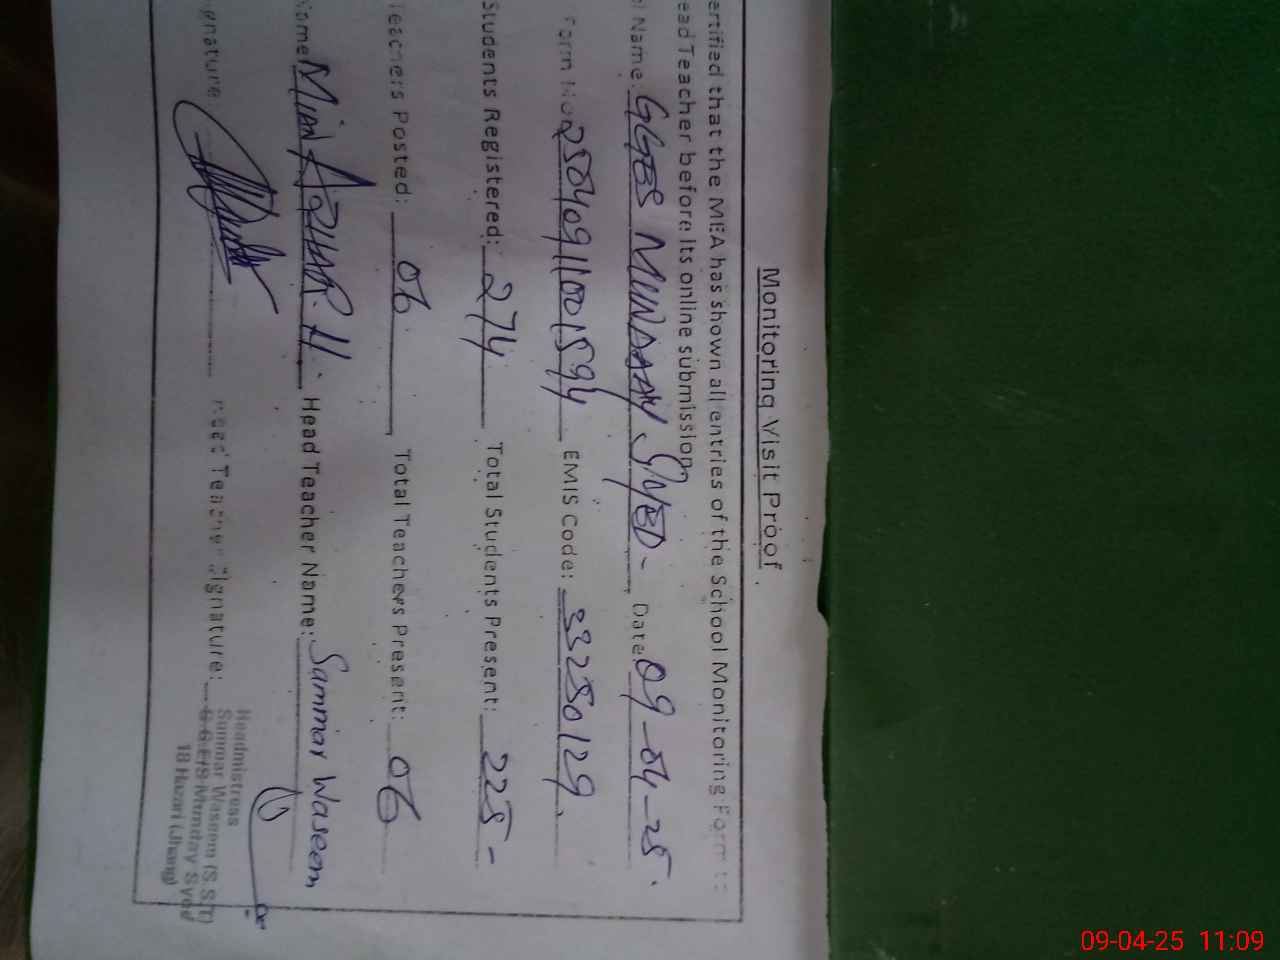 Monitoring Visit Proof
ertified that the MEA has shown all entries of the School Monitoring Form to
ead Teacher before its online submission.
l Name: GGES MUNDAAY SYED - Date 09-04-25.
Form No: 25040911001594 EMIS Code: 33250129.
Students Registered: 274 Total Students Present: 225 -
Teachers Posted: 06 Total Teachers Present: 06
Name: Mian AZHAR H. Head Teacher Name: Sammar Waseem
gnature Head Teacher Signature:
Headmistress
Summar Waseem (S.S.T)
G G E/S Munday Syed
18 Hazari (Jhang)
09-04-25 11:09